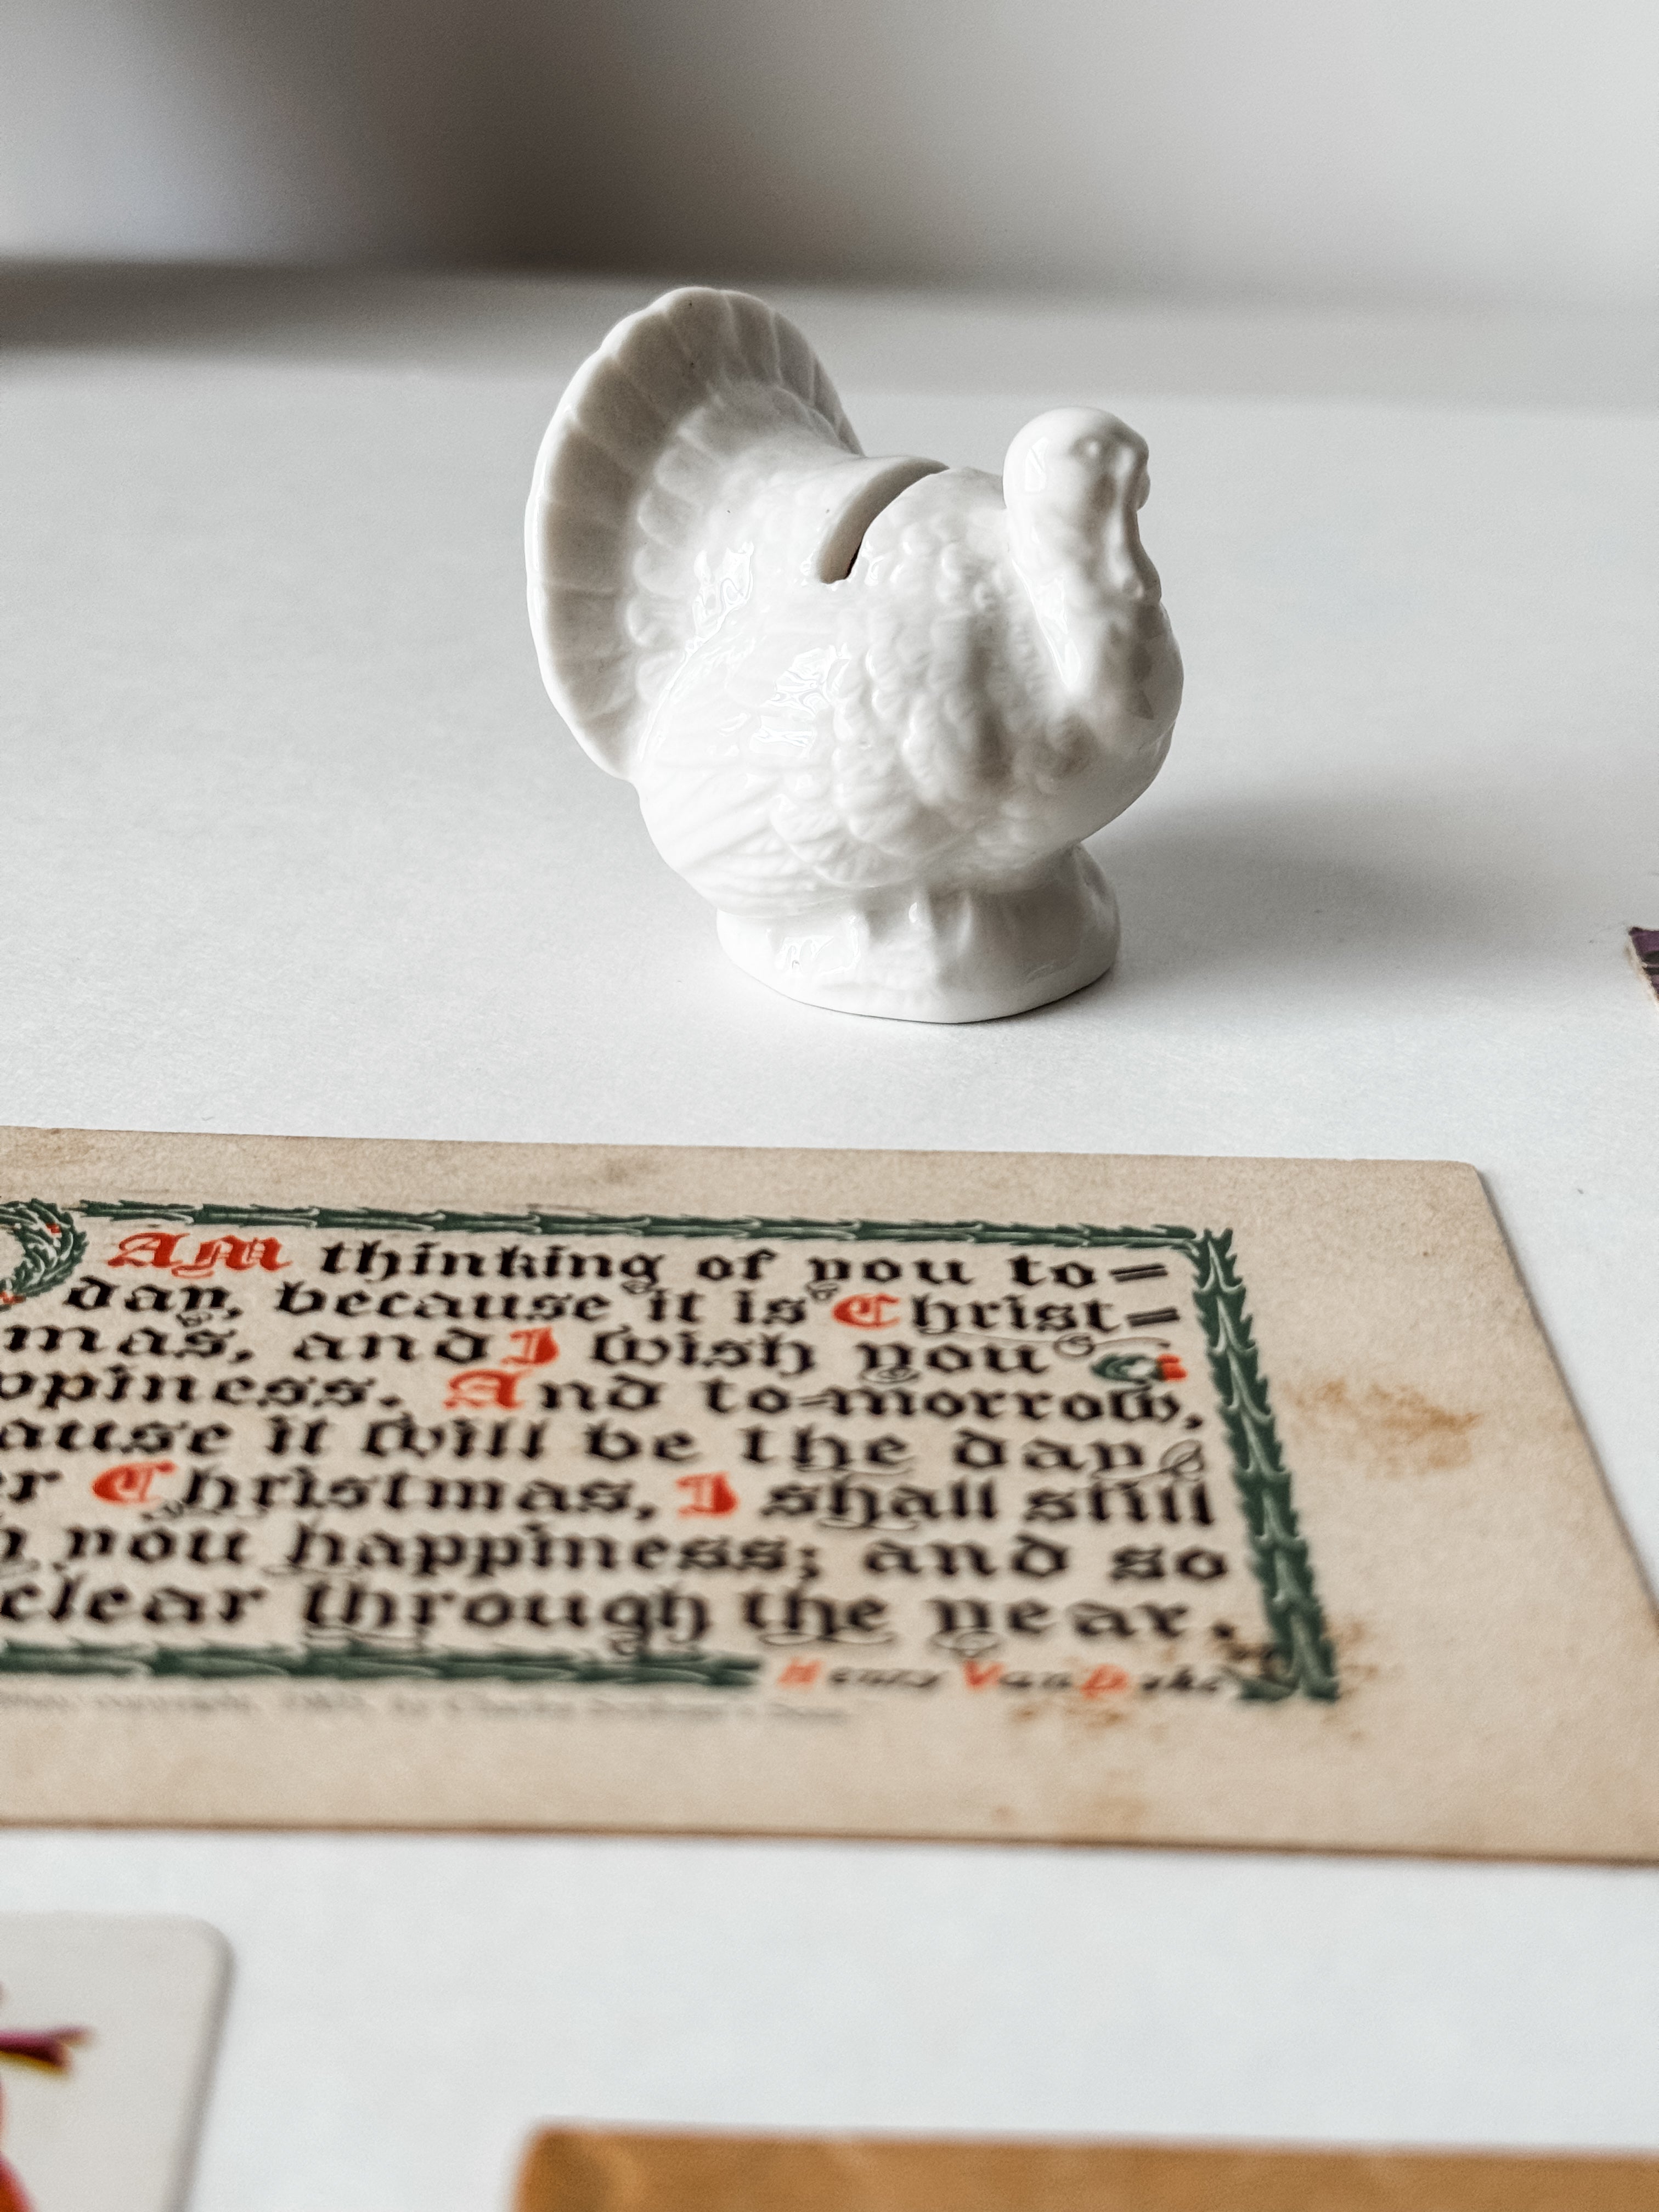 AM thinking of you to=
day, because it is Christ=
mas, and I wish you
ppiness. And to=morrow,
ause it will be the day
er Christmas, I shall still
h you happiness; and so
clear through the year.
Henry Van Dyke